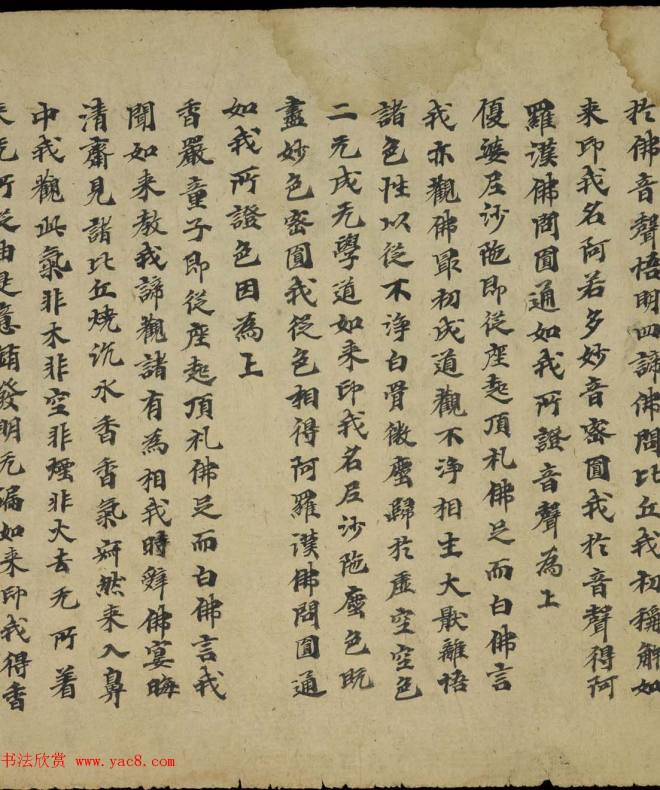 於佛音聲悟明四諦佛問比丘我初稱解如
来印我名阿若多妙音密圓我於音聲得阿
羅漢佛問圓通如我所證音聲為上
優婆尼沙陁即從座起頂礼佛足而白佛言
我亦觀佛冣初成道觀不淨相生大猒離悟
諸色性以從不淨白骨微塵歸於虛空空色
二无成无學道如来印我名尼沙陁塵色既
盡妙色密圓我從色相得阿羅漢佛問圓通
如我所證色因為上
香嚴童子即從座起頂礼佛足而白佛言我
聞如来教我諦觀諸有為相我時辭佛宴晦
清齋見諸比丘燒沉水香香氣寂然来入鼻
中我觀此氣非木非空非煙非火去无所着
来无所從由是意銷發明无漏如来印我得香
书法欣赏 www.yac8.com